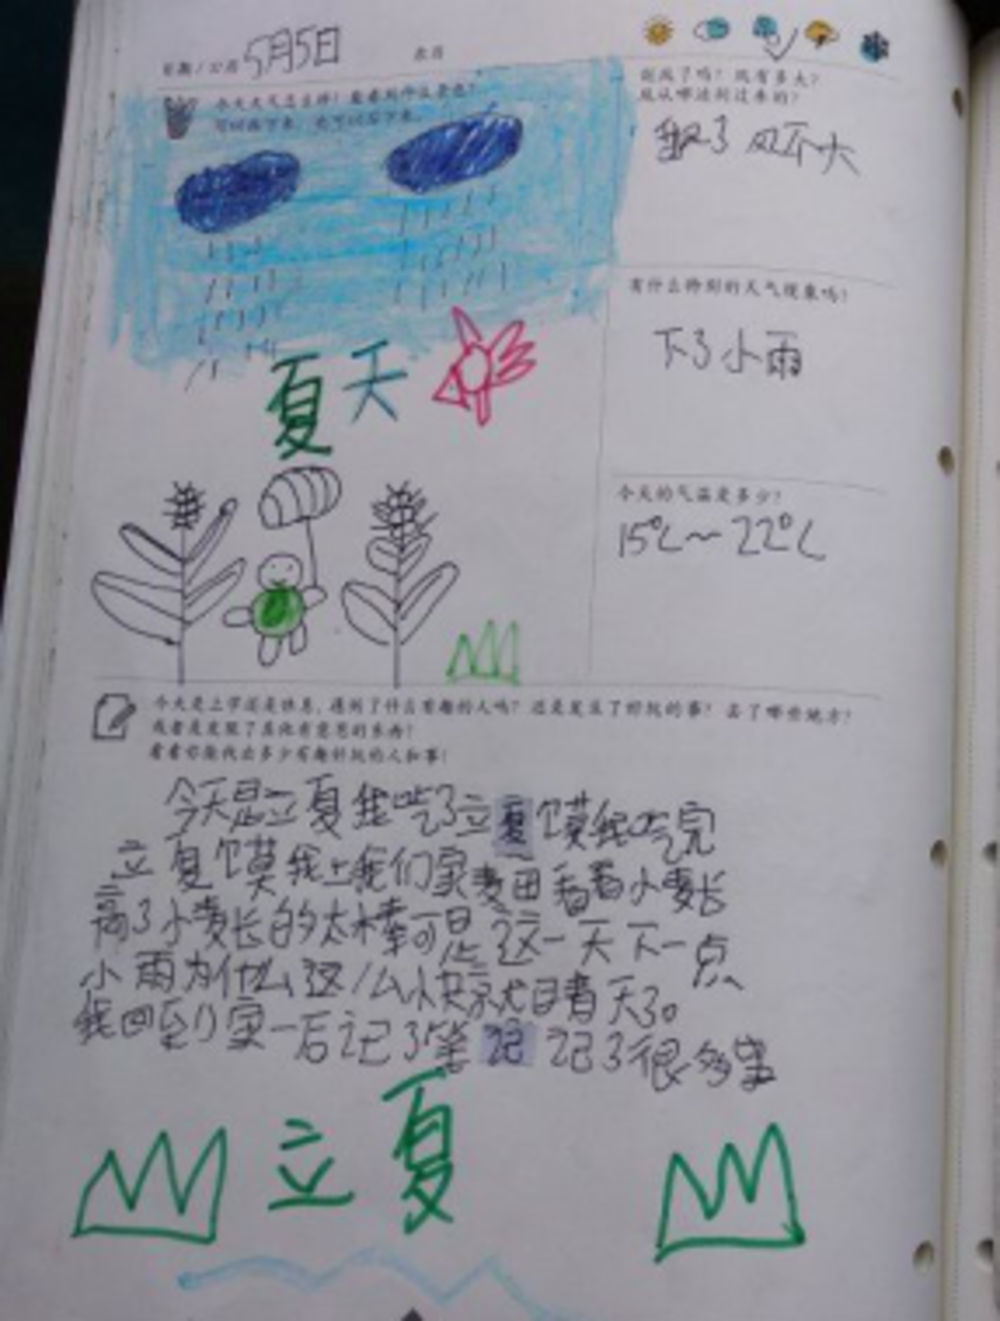 日期/公历 5月5日 农历
今天天气怎么样?能看到什么景色?
可以画下来,也可以写下来。
刮风了吗?风有多大?
风从哪边刮过来的?
刮了 风不大
有什么特别的天气现象吗?
下了小雨
夏天
今天的气温是多少?
15℃~22℃
今天是上学还是休息,遇到了什么有趣的人吗?还是发生了好玩的事?去了哪些地方?
或者是发现了其他有意思的东西?
看看你能找出多少有趣好玩的人和事!
今天是立夏我吃了立夏馍我吃完
立夏馍我上我们家麦田看着小麦长
高了小麦长的太棒可是这一天下一点
小雨为什么这么快就日青天了。
我回到家一后记了笔记记了很多事
立夏